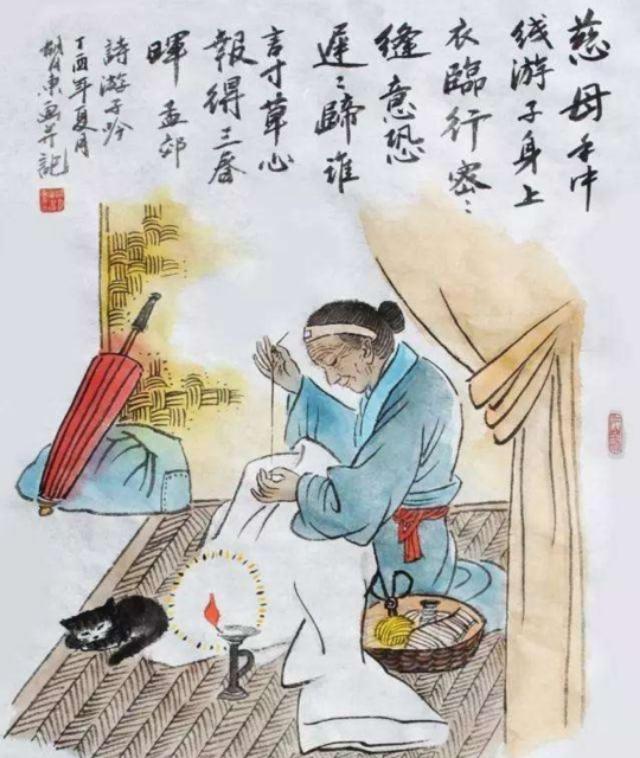 慈母手中
线游子身上
衣臨行密〻
缝意恐
遲〻歸谁
言寸草心
報得三春
暉 孟郊
詩游子吟
丁酉年夏月
東画并記